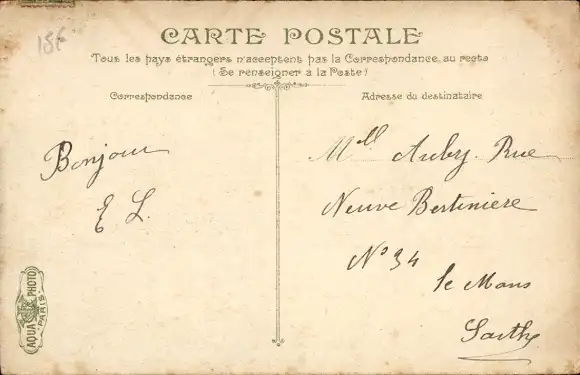 18f
CARTE POSTALE
Tous les pays étrangers n'acceptent pas la Correspondance au recto
(Se renseigner à la Poste)
Correspondance
Adresse du destinataire
Bonjour
E L.
Mell Aubry. Rue
Neuve Bertinière
No 34
le Mans
Sarthe
AQUA PHOTO
PARIS